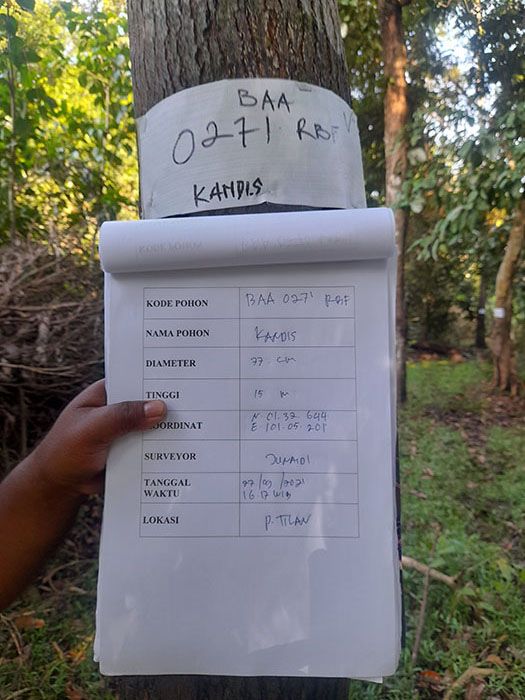 BAA
0271 RBF
KANDIS
KODE POHON BAA 0271 RBF
NAMA POHON KANDIS
DIAMETER 77 cm
TINGGI 15 m
KOORDINAT N 01.32 644
E 101.05.201
SURVEYOR JUNAIDI
TANGGAL 27/09/2021
WAKTU 16 17 WIB
LOKASI P. TILAN